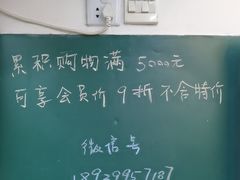 累积购物满 5000元
可享会员价 9折 不含特价
微信号
18929957187